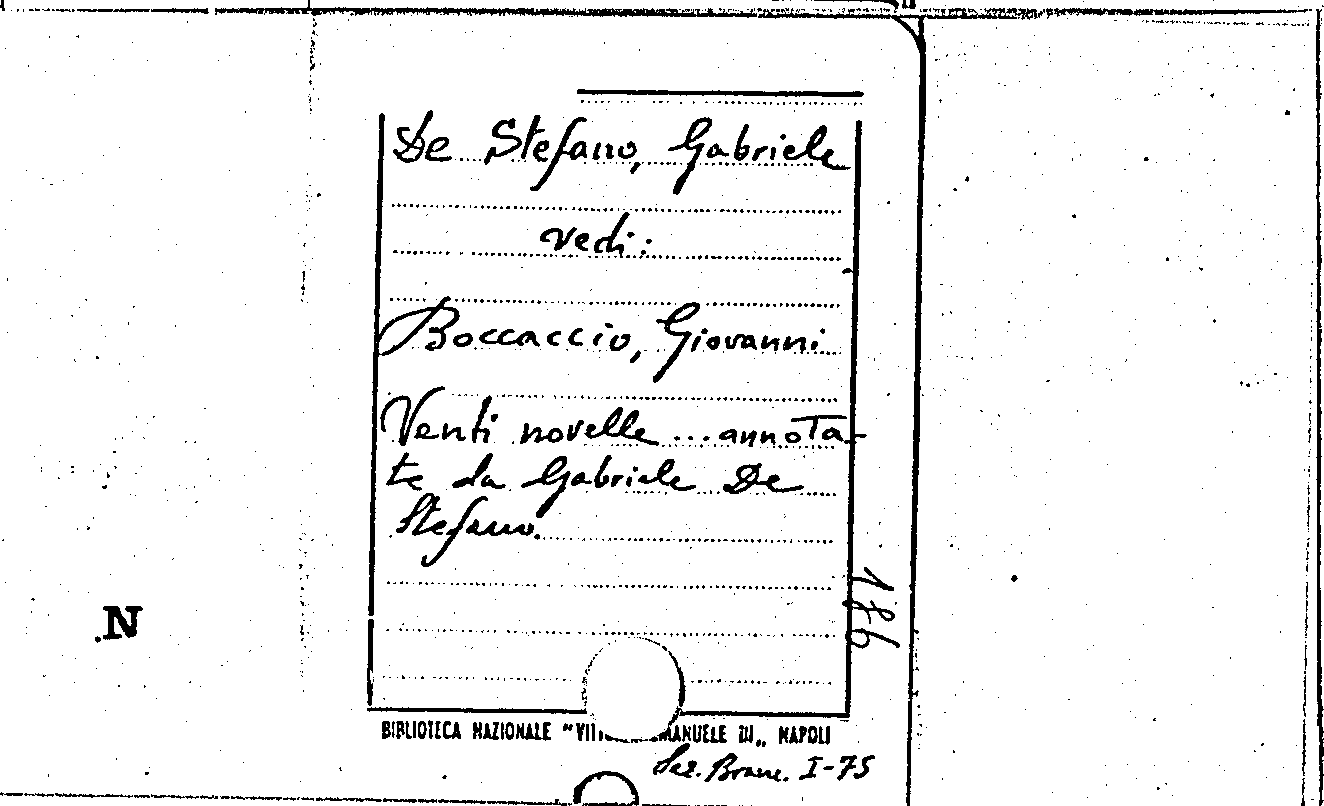 De Stefano, Gabriele
vedi:
Boccaccio, Giovanni
Venti novelle ... annota-
te da Gabriele De
Stefano.
186
N
BIBLIOTECA NAZIONALE "VITT EMANUELE III„ NAPOLI
Sez. Branc. I-75